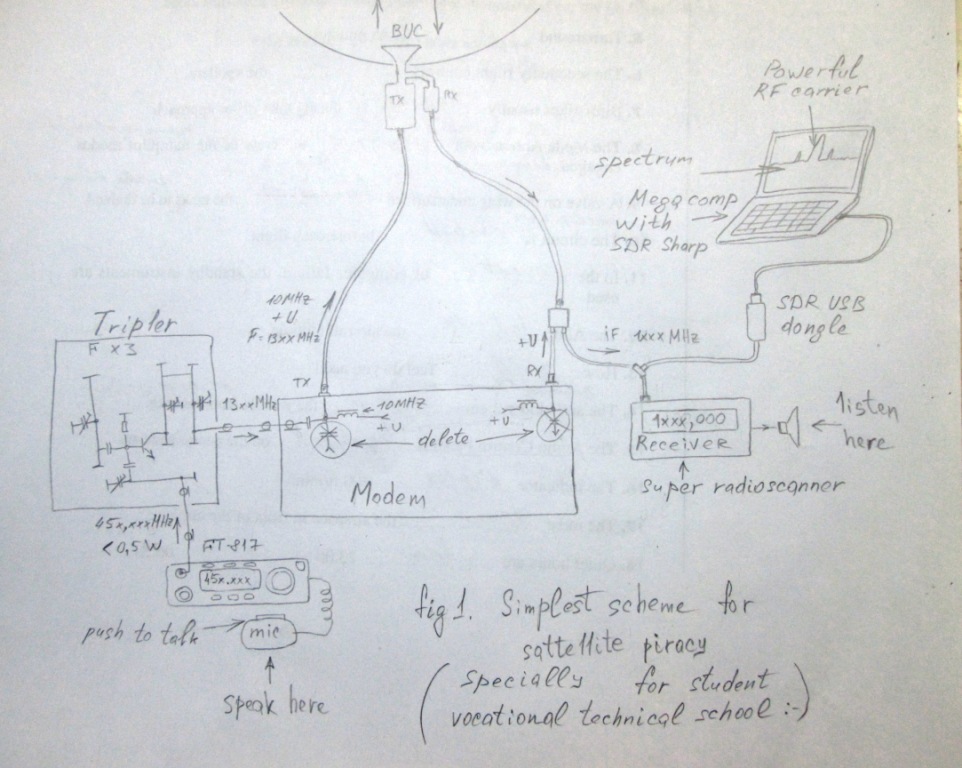 BUC
TX
RX
Powerful
RF carrier
spectrum
Mega comp
with
SDR Sharp
SDR USB
dongle
10MHz
+U
F=13xxMHz
Tripler
F x3
13xxMHz
TX
10MHz
+U
delete
+U
RX
+U
iF 1xxx MHz
Modem
1xxx,000
Receiver
super radioscanner
listen
here
45x,xxxMHz
<0,5W
FT-817
45x.xxx
push to talk
mic
speak here
fig1. Simplest scheme for
sattellite piracy
(specially for student
vocational technical school :-)